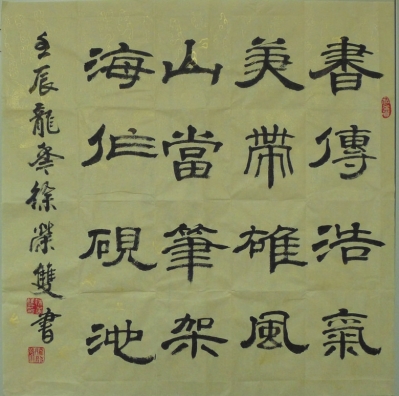 書傳浩氣
美帶雄風
山當筆架
海作硯池
壬辰龍徐榮雙書